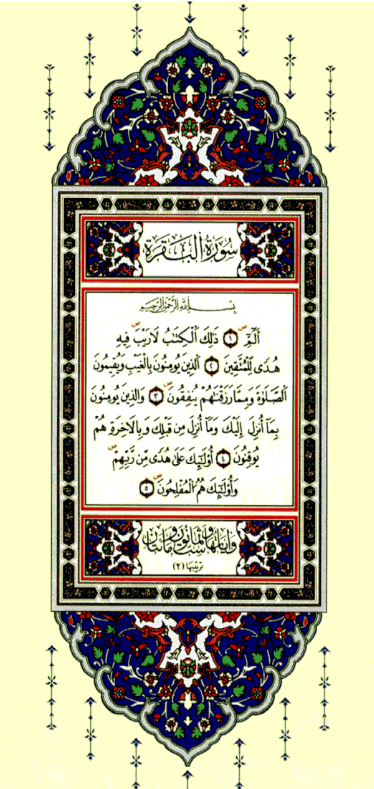 سُورَةُ الْبَقَرَةِ
بِسْمِ اللَّهِ الرَّحْمَٰنِ الرَّحِيمِ
أَلَٓمِّٓۖ ١ ذَٰلِكَ اَلْكِتَٰبُ لَا رَيْبَ فِيهِ
هُدىً لِّلْمُتَّقِينَۖ ٢ اَلذِينَ يُومِنُونَ بِالْغَيْبِ وَيُقِيمُونَ
اَلصَّلَوٰةَ وَمِمَّا رَزَقْنَٰهُمْ يُنفِقُونَۖ ٣ وَالذِينَ يُومِنُونَ
بِمَآ أُنزِلَ إِلَيْكَ وَمَآ أُنزِلَ مِن قَبْلِكَ وَبِالْآخِرَةِ هُمْ
يُوقِنُونَۖ ٤ أُوْلَٰٓئِكَ عَلَىٰ هُدىً مِّن رَّبِّهِمْۖ
وَأُوْلَٰٓئِكَ هُمُ اُلْمُفْلِحُونَۖ ٥
وآياتها ست وثمانون ومائتان
ترتيبها (٢)